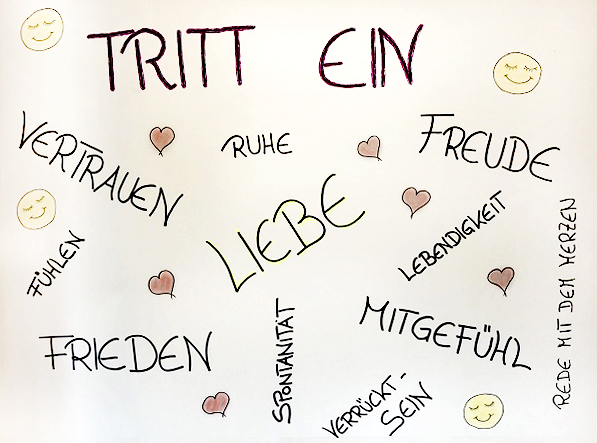 TRITT EIN
VERTRAUEN
RUHE
FREUDE
LIEBE
LEBENDIGKEIT
FÜHLEN
REDE MIT DEM HERZEN
FRIEDEN
SPONTANITÄT
MITGEFÜHL
VERRÜCKT-
SEIN